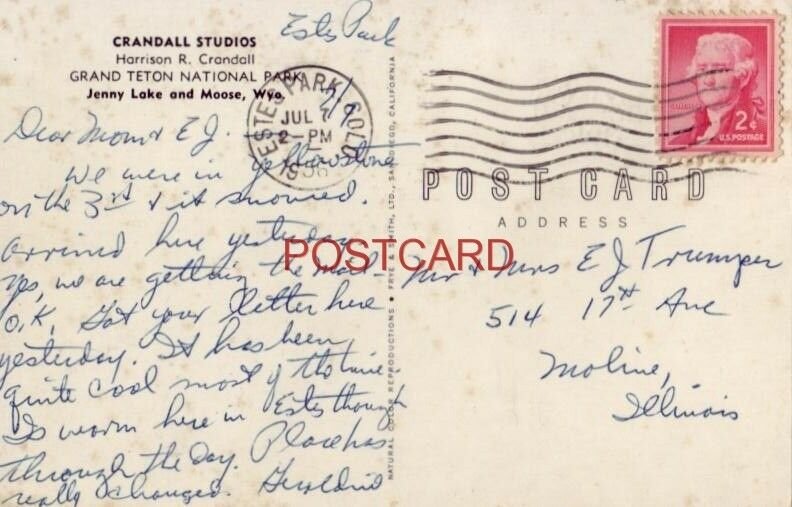 Estes Park
CRANDALL STUDIOS
Harrison R. Crandall
GRAND TETON NATIONAL PARK
Jenny Lake and Moose, Wyo.
7/7
ESTES PARK, COLO.
JUL 7
2-PM
1956
2¢
U.S. POSTAGE
Dear Mom & E J. -
We were in Yellowstone
on the 3rd & it snowed.
Arrived here yesterday.
Yes, we are getting the mail
O.K. Got your letter here
yesterday. It has been
quite cool most of the time.
Is warm here in Estes though
through the day. Place has
really changed. Geraldine
NATURAL COLOR REPRODUCTIONS • FRYE & SMITH, LTD., SAN DIEGO, CALIFORNIA
POST CARD
ADDRESS
POSTCARD
Mr & Mrs E J Trumper
514 17th Ave
Moline,
Illinois